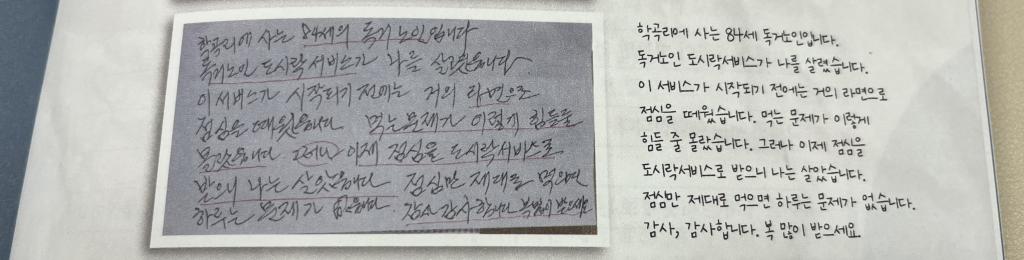 학곡리에 사는 84세의 독거노인입니다
독거노인 도시락서비스가 나를 살렸읍니다
이 서비스가 시작되기 전에는 거의 라면으로
점심을 때웠읍니다 먹는문제가 이렇게 힘들줄
몰랐읍니다 그러나 이제 점심을 도시락서비스로
받으니 나는 살았읍니다 점심만 제대로 먹으면
하루는 문제가 없읍니다 감사 감사합니다 복많이 받으세요
학곡리에 사는 84세 독거노인입니다.
독거노인 도시락서비스가 나를 살렸습니다.
이 서비스가 시작되기 전에는 거의 라면으로
점심을 떼웠습니다. 먹는 문제가 이렇게
힘들 줄 몰랐습니다. 그러나 이제 점심을
도시락서비스로 받으니 나는 살았습니다.
점심만 제대로 먹으면 하루는 문제가 없습니다.
감사, 감사합니다. 복 많이 받으세요.